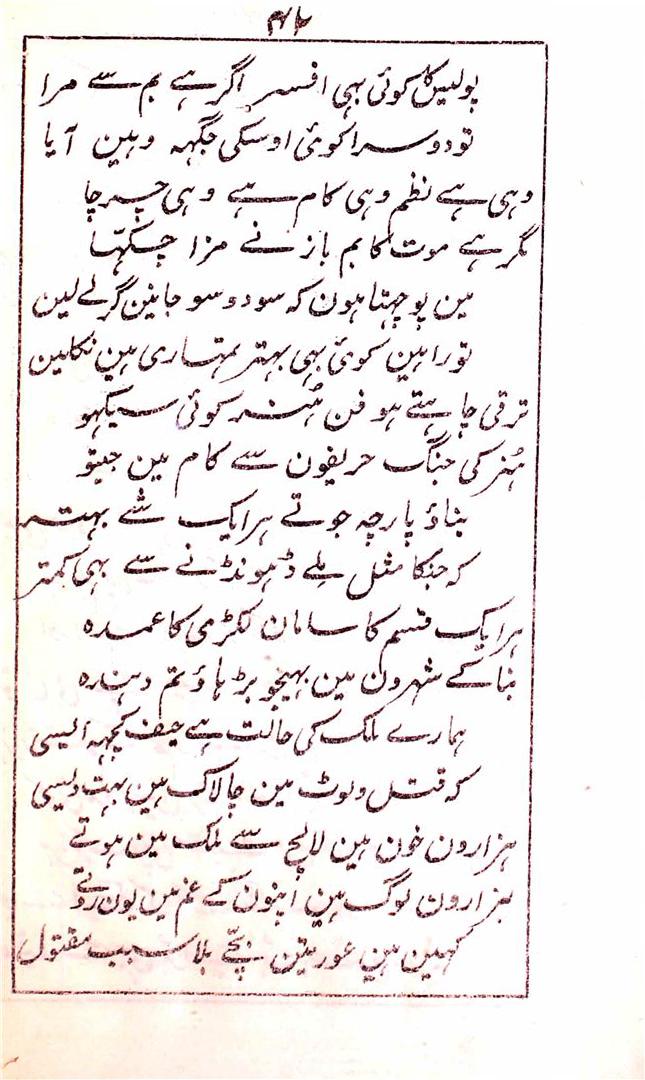 ۴۲
پولیس کا کوئی بہی افسر اگر ہے بم سے مرا
تو دوسرا کوئی اوسکی جگہہ وہین آیا
وہی ہے نظم وہی کام ہے وہی چرچا
مگر ہے موت کا بم باز نے مزا چکہا
مین پوچہتا ہون کہ سو دو سو جانین گر لے لین
تو راہین کوئی بہی بہتر تمہاری ہین نکلین
ترقی چاہتے ہو فن ہُنر کوئی سیکہو
ہُنر کی جنگ حریفون سے کام مین جیتو
بناؤ پارچہ جوتے ہر ایک شے بہتر
کہ جنکا مثل ملے ڈھونڈنے سے بہی کمتر
ہر ایک قسم کا سامان لکڑی کا عمدہ
بنا کے شہرون مین بہیجو بڑہاؤ تم دہندہ
ہمارے ملک کی حالت ہے حیف کچہہ ایسی
کہ قتل و لوٹ مین چالاک ہین بہت دیسی
ہزارون خون ہین لالچ سے ملک مین ہوتے
ہزارون لوگ ہین اپنون کے غم مین یون روتے
کہین ہین عورتین بچّے بلا سبب مقتول